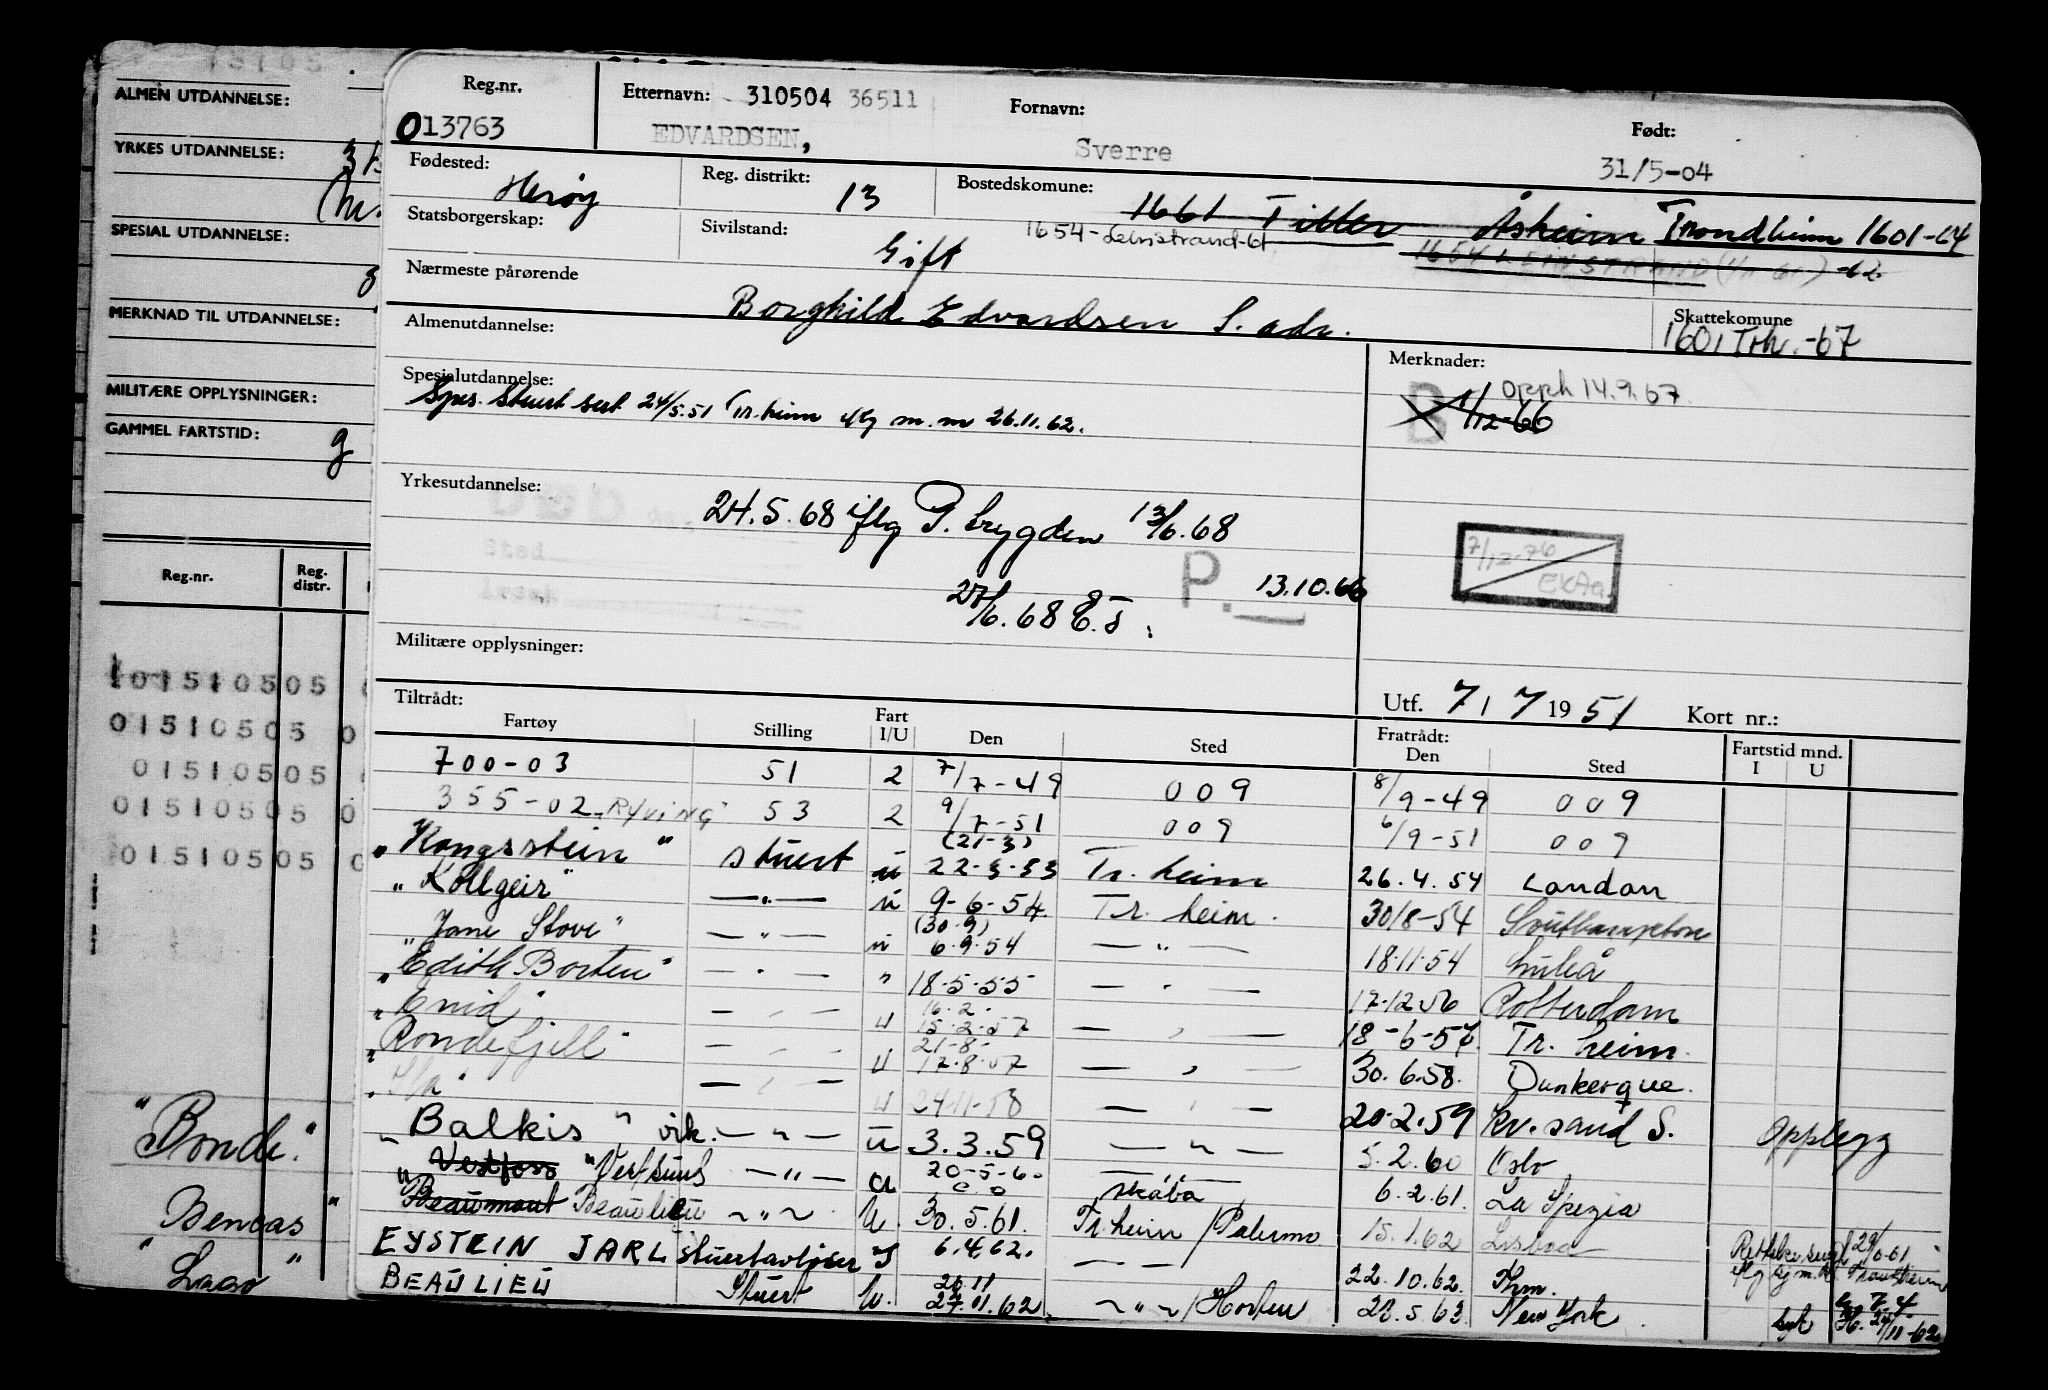 ALMEN UTDANNELSE:
YRKES UTDANNELSE:
SPESIAL UTDANNELSE:
MERKNAD TIL UTDANNELSE:
MILITÆRE OPPLYSNINGER:
GAMMEL FARTSTID:
Reg.nr. Reg. distr.
01510505
01510505
01510505
01510505
01510505
"Bonde"
Bencas "
" Lago "
Reg.nr. Etternavn: 310504 36511 Fornavn: Født:
013763 EDVARDSEN, Sverre 31/5-04
Fødested: Herøy Reg. distrikt: 13 Bostedskomune: 1661 Tiller Åsheim Trondheim 1601-64
Statsborgerskap: Sivilstand: Gift 1654-Leinstrand-61 1654 LEINSTRAND -62
Nærmeste pårørende Borghild Edvardsen S. adr.
Skattekomune 1601 Trh.-67
Almenutdannelse: Merknader:
B 1/12-66 Opph 14.9.67.
Spesialutdannelse:
Spes. Stuert sert 24/5.51 Tr.heim iflg m.m 26.11.62.
Yrkesutdannelse:
24.5.68 iflg P. trygden 13/6.68
P. 13.10.66
27/6.68 E.T.
7/12-76
Militære opplysninger:
Utf. 7/7 1951 Kort nr.:
Tiltrådt: Fratrådt: Fartstid mnd.
Fartøy Stilling Fart I/U Den Sted Den Sted I U
700-03 51 2 7/7-49 009 8/9-49 009
355-02 RYVING 53 2 9/7-51 009 6/9-51 009
"Kongsstein" stuert u (21-3) 22-3-53 Tr. heim 26.4.54 London
"Kollgeir" —"— u 9-6-54 Tr. heim. 30/8-54 Southampton
"Jane Stove" —"— u (30.9) 6.9.54 —"— 18.11.54 Luleå
"Edith Borten" —"— " 18.5.55 —"— 17.12.56 Rotterdam
"Enid" —"— u 16.2. 15.2.57 —"— 18-6-57 Tr. heim.
"Rondefjell" —"— u 21-8- 17.8.57 —"— 30.6.58. Dunkerque.
—"— u 24.11-58 —"— 20.2.59 Kr. sand S. Opplegg
" Balkis " vik. —"— u 3.3.59 —"— 5.2.60 Oslo
" Vestfoss "Vestsund —"— u 20-5-60 6.2.61. La Spezia
Beaumont Beaulieu —"— U. 30.5.61. Tr.heim/Palermo 15.1.62 Lisboa
EYSTEIN JARL stuertavløser 6.4.62. —"— 22.10.62. Thm.
BEAULIEU Stuert U. 26.11 27.11.62 —"—/Horten 28.5.63. New York syk